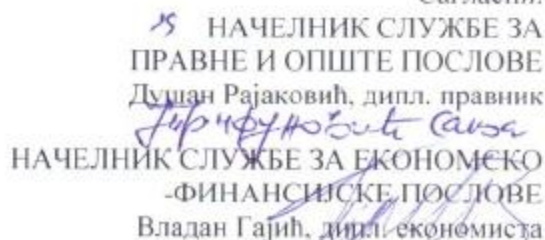 НАЧЕЛНИК СЛУЖБЕ ЗА
ПРАВНЕ И ОПШТЕ ПОСЛОВЕ
Душан Рајаковић, дипл. правник
НАЧЕЛНИК СЛУЖБЕ ЗА ЕКОНОМСКО
-ФИНАНСИЈСКЕ ПОСЛОВЕ
Владан Гајић, дипл. економиста